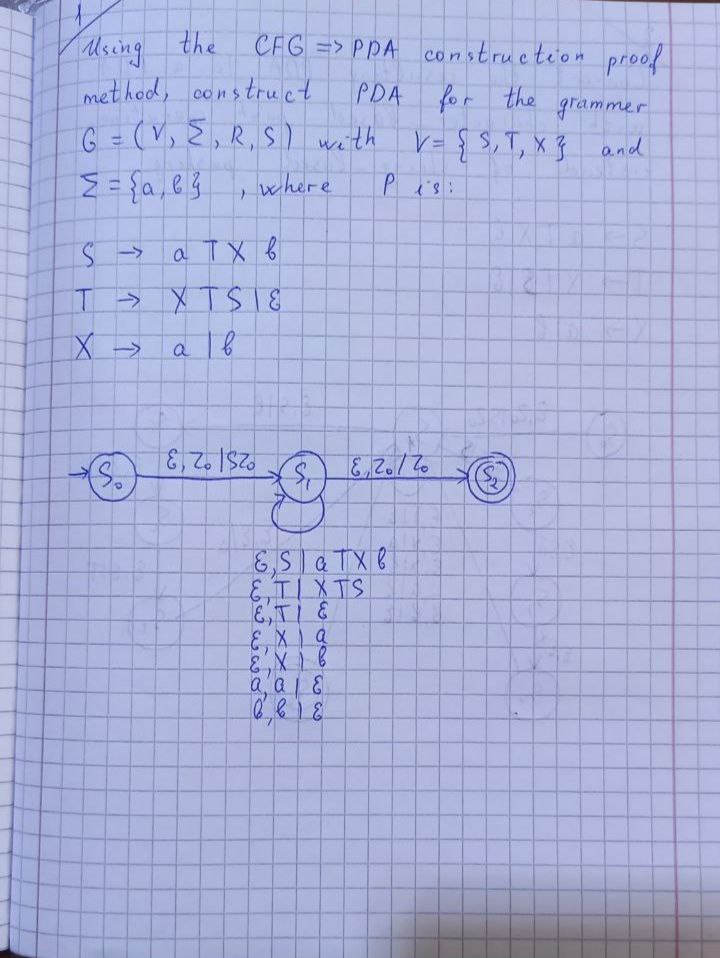 1
Using the CFG => PDA construction proof
method, construct PDA for the grammer
G = (V, Σ, R, S) with V = { S, T, X } and
Σ = {a, b} , where P is:
S → a T X b
T → X T S | ε
X → a | b
S₀ ε, z₀ | Sz₀ S₁ ε, z₀ / z₀ S₂
ε, S | a T X b
ε, T | X T S
ε, T | ε
ε, X | a
ε, X | b
a, a | ε
b, b | ε